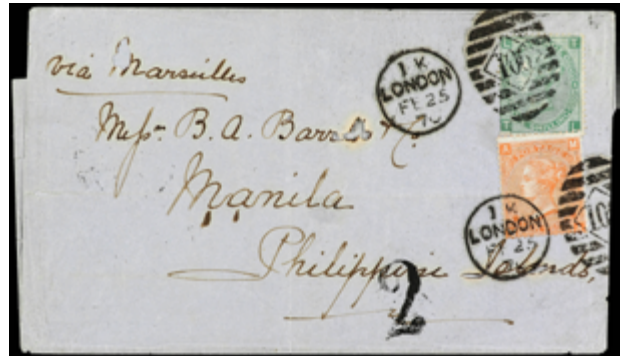 via Marseilles
Messrs. B. A. Barretto & Co.
Manila
Philippine Islands,
1 K
LONDON
FE 25
70
1 K
LONDON
FE 25
2